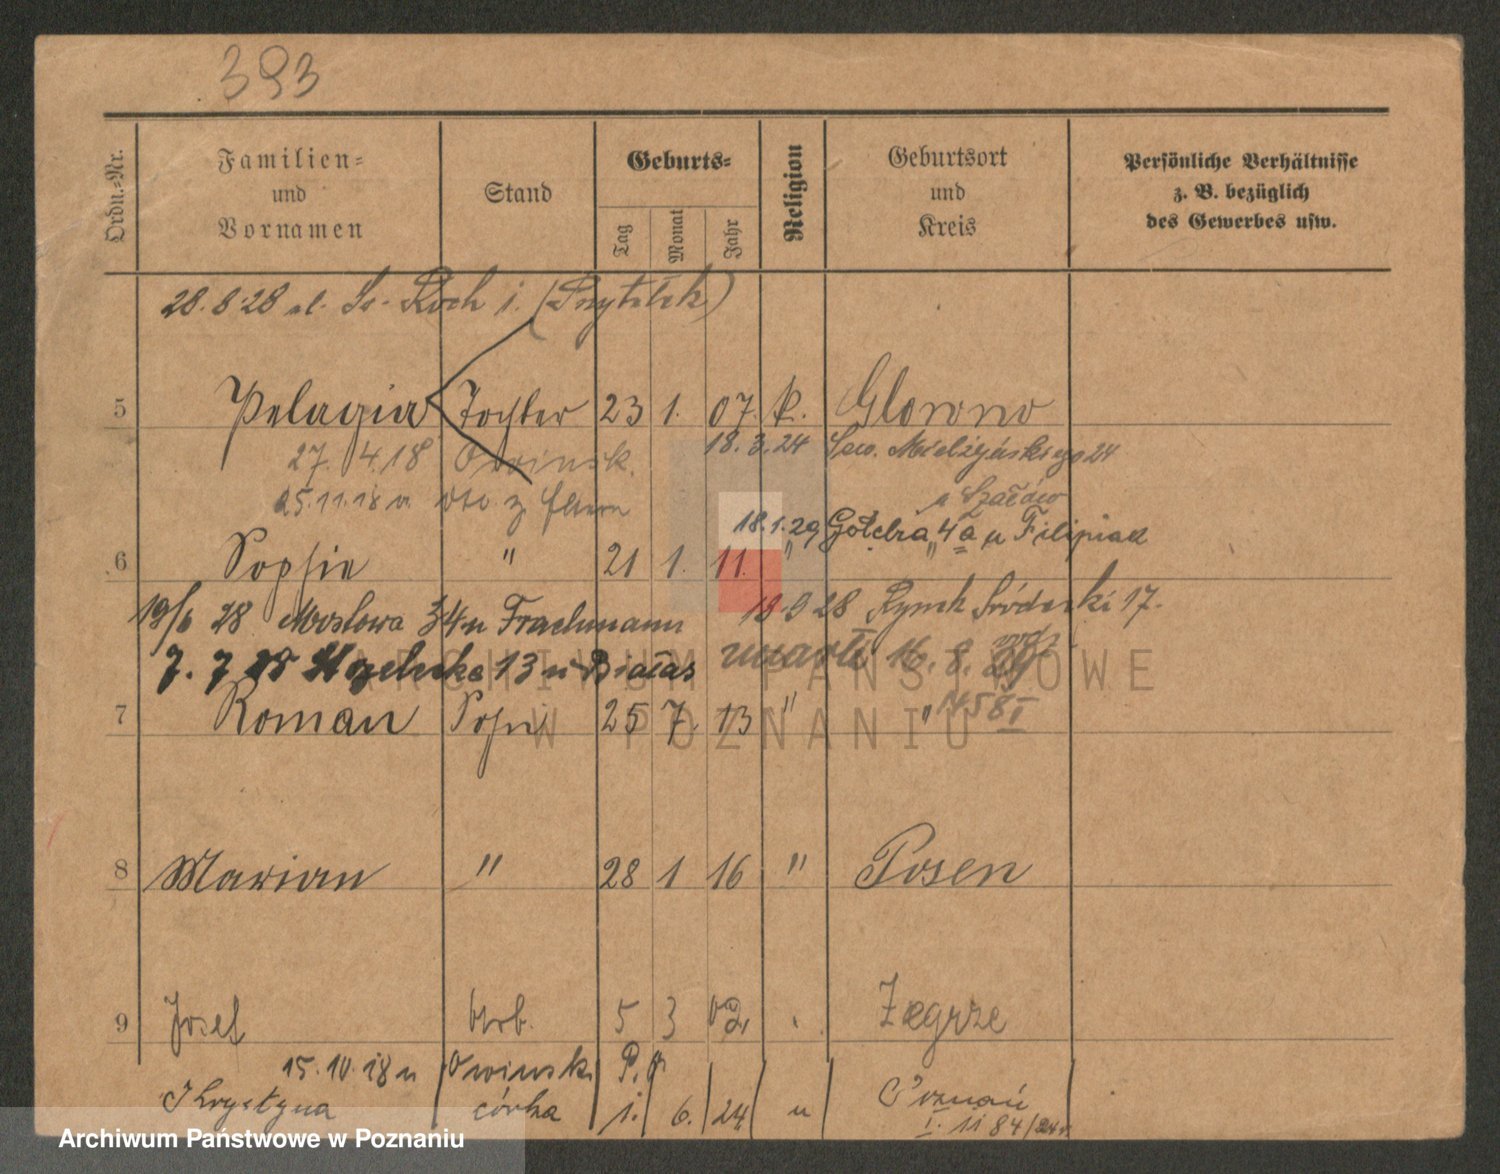 393
Ordn.=Nr. Familien= und Vornamen Stand Geburts= Tag Monat Jahr Religion Geburtsort und Kreis Persönliche Verhältnisse z. B. bezüglich des Gewerbes usw.
28.8.28 Roch i. (Przytułek)
5 Pelagia Tochter 23 1. 07. k. Glowno
27. 4 18 Owinsk. 18.3.24 Sew. Mielżyńskiego 24
25.11.18 v. z. Eltern
18.1.29 Gołebia 4a u Filipiak
6 Sophie " 21 1. 11. "
19/6 28 Mostowa 34 u Trachmann 13 9 28 Rynek Śródecki 17.
7. 7 28 13 u Białas zmarła 16. 8. 29
7 Roman Sohn 25 7. 13 " " 1458 I
8 Marian " 28 1 16 " Posen
9 Josef Arb. 5 3 02 Zegrze
15.10.18 u Owinsk
Krystyna córka 1. 6. 24 " Poznań
I. 1184/24
ARCHIWUM PAŃSTWOWE
W POZNANIU
Archiwum Państwowe w Poznaniu